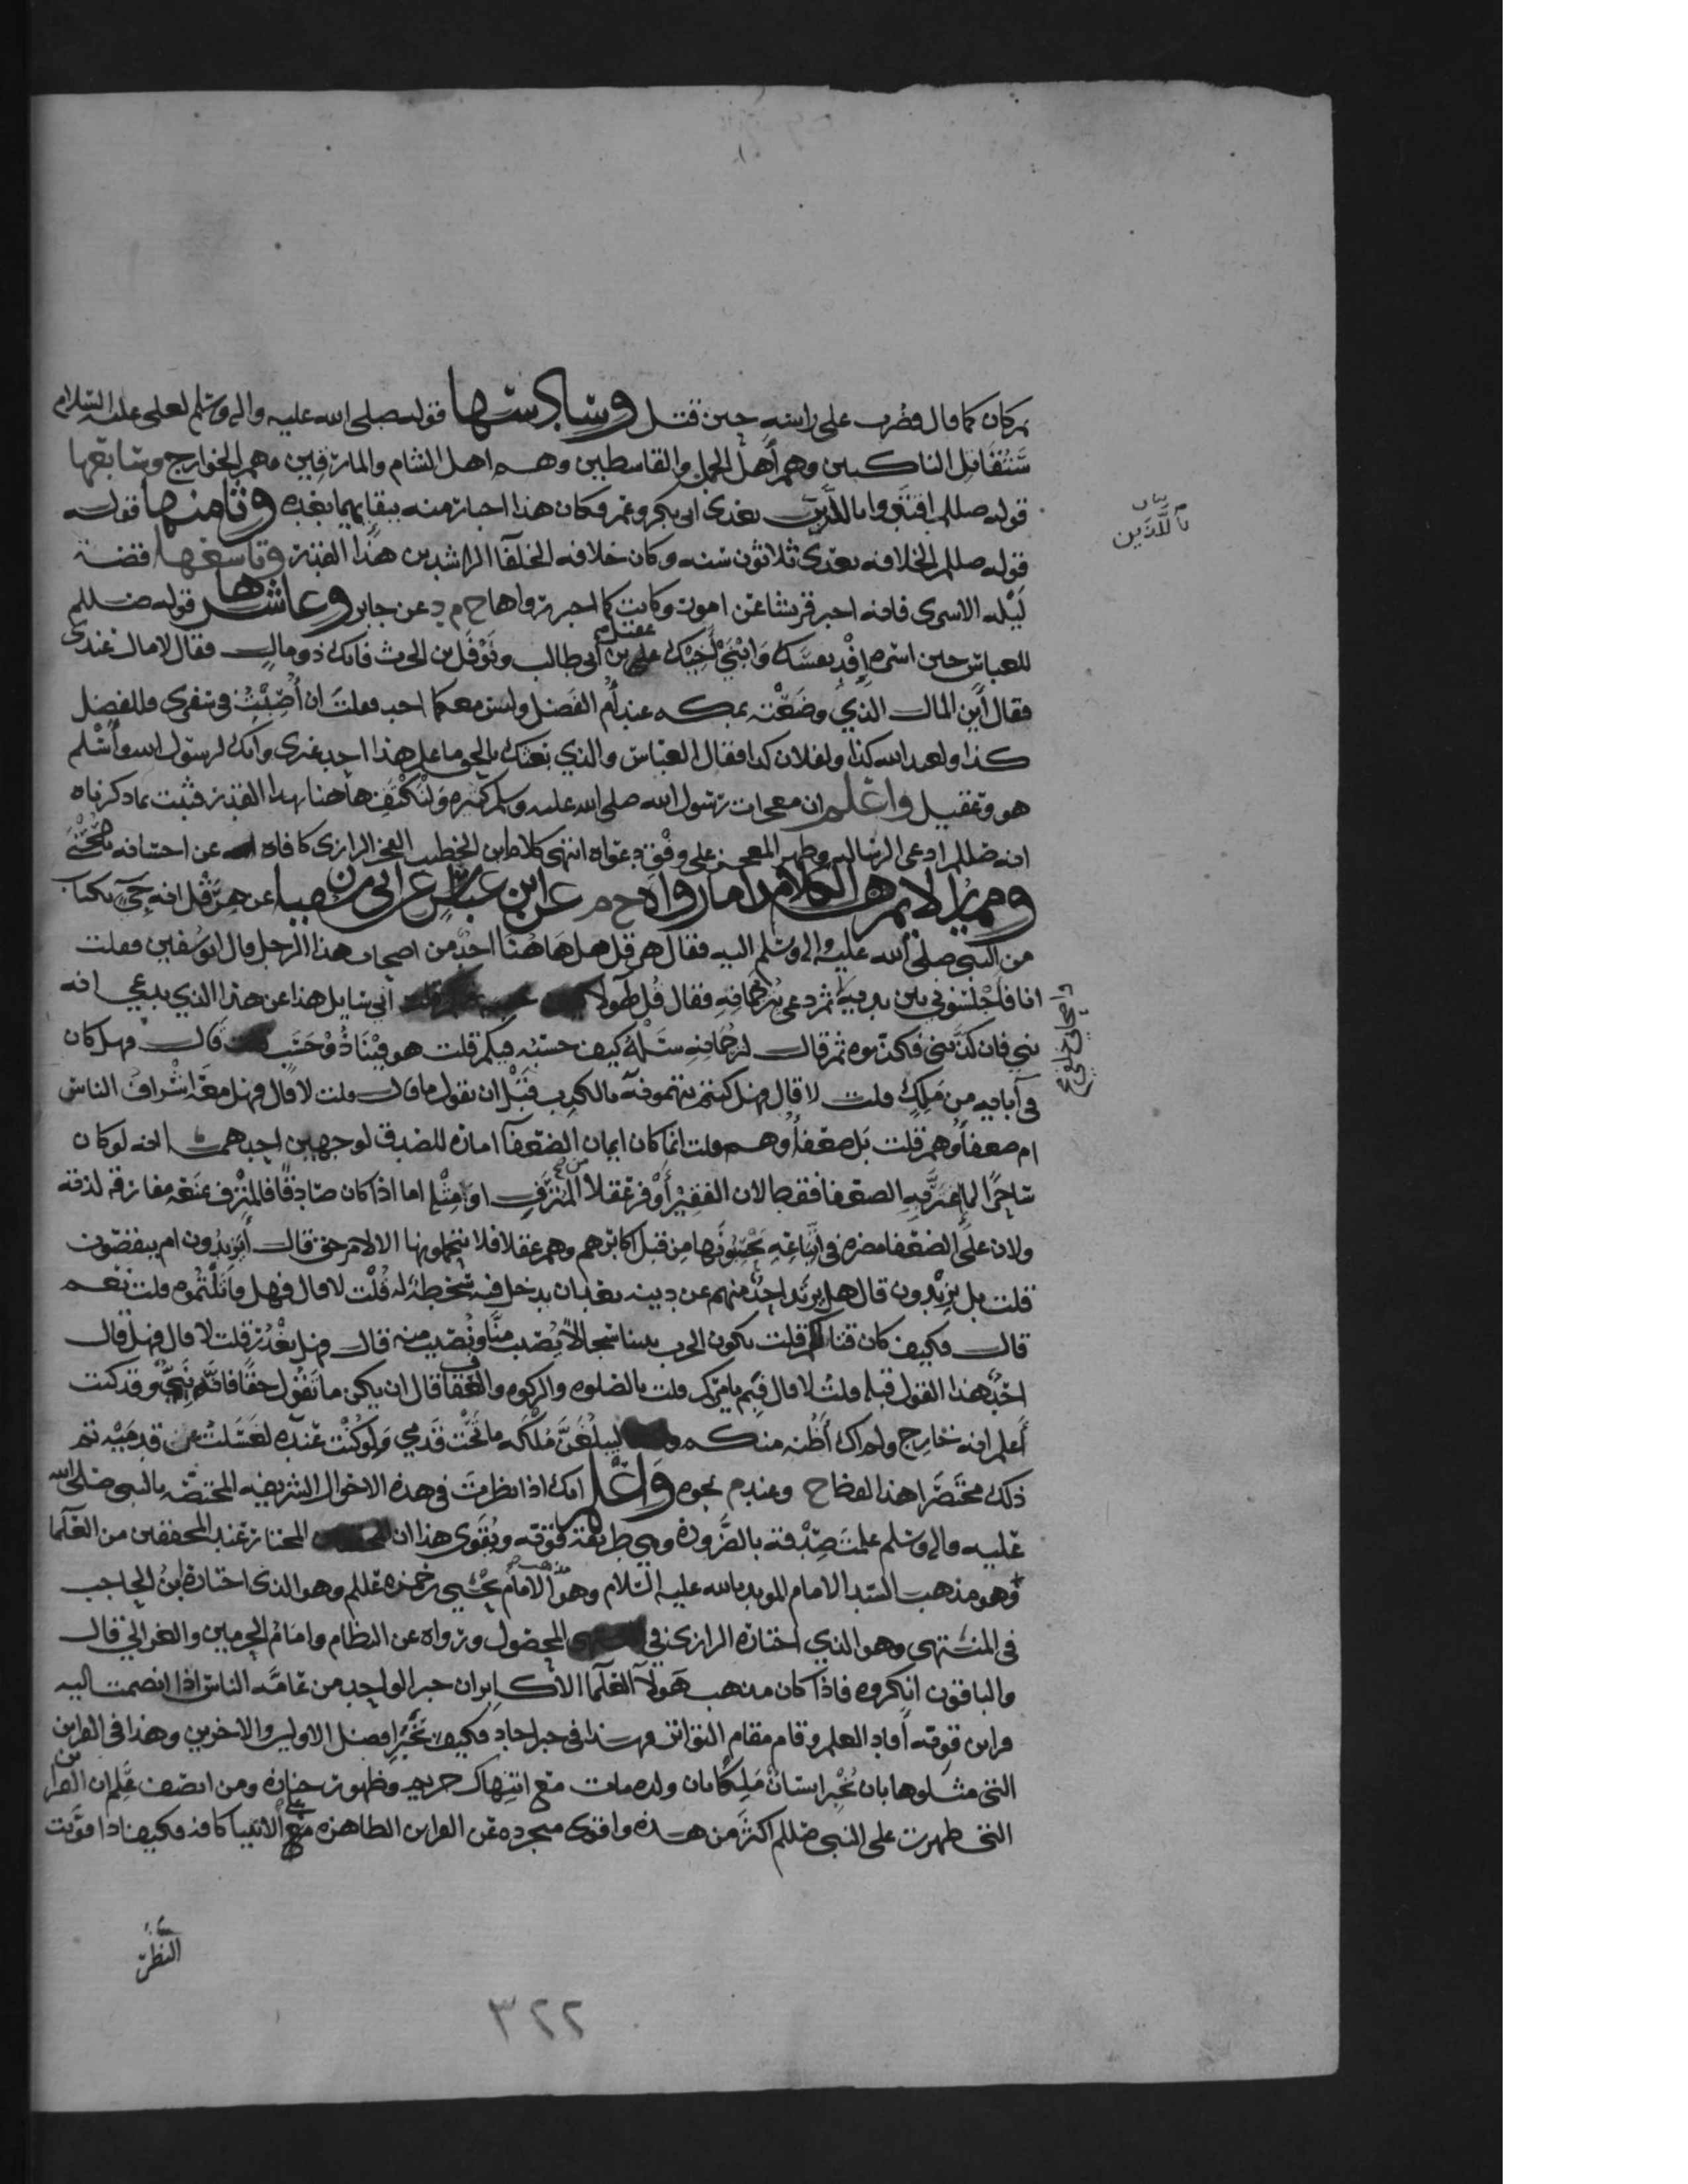 ثم كان كما قال فضرب على راسه حين قتل وسادستها قوله صلى الله عليه واله وسلم لعلى عليه السلام
ستقاتل الناكثين وهم أهل الجمل والقاسطين وهم اهل الشام والمارقين وهم الخوارج وسابعها
بيان
باللَّذين
قوله صللم اقتدوا باللذين بعدى ابى بكر وعمر فكان هذا اخبار منه ببقايهما بعده وثامنها قوله
قوله صللم الخلافه بعدى ثلاثون سنه وكان خلافه الخلفا الراشدين هذا القدر وتاسعها قصة
ليله الاسرى فانه اخبر قريشا عن امور وكانت كما اخبر رواها خ م د عن جابر وعاشرها قوله صللم
للعباس حين اسره إفْدِ نفسك وابنَيْ أخيك عقيل بن أبى طالب ونَوْفَل بن الحرث فانك ذو مال فقال لا مال عندى
فقال أين المال الذي وضعته بمكه عند أم الفضل وليس معكما احد فقلت ان أُصِبْتُ فى سفرى فللفضل
كذا ولعبد الله كذا ولفلان كذا فقال العباس والذي بعثك بالحق ما علم هذا احد غيرى وانك لرسول الله وأسلم
هو وعقيل واعلم ان معجزات رسول الله صلى الله عليه وسلم كثيره ولنكتف هاهنا بهذا القدر فثبت بما ذكرناه
انه صللم ادعى الرساله وظهر المعجز على وفق دعواه انتهى كلام ابن الخطيب الفخر الرازى كافاه الله عن احسانه
ومما يلايم هذا الكلام ما رواه خ م عن ابن عباس عن ابى سفين عن هرقل انه جىَ بكتاب
من النبى صلى الله عليه واله وسلم اليه فقال هرقل هل هاهنا احد من اصحاب هذا الرجل قال ابو سفين فقلت
انا فأجلسوني بين يديه ثم دعى ترجمانه فقال قل لهولا أني سايل هذا عن هذا الذي يدعي انه
نبي فان كذَبنى فكذبوه ثم قال لترجمانه سَلْهُ كيف حسبه فيكم قلت هو فينا ذو حَسَب قال فهل كان
فى آبايه من مَلِك قلت لا قال فهل كنتم تتهمونه بالكذب قبل ان يقول ما قال قلت لا قال فهل معه اشراف الناس
ام ضعفاوهم قلت بل ضعفاوهم قلت انما كان ايمان الضعفآ امارة للصدق لوجهين احدهما انه لو كان
ولان على الضعفا مضره فى اتباعه من قبل اكابرهم وهم عقلا فلا يتحملونها الا لامر حق قال أيزيدون ام ينقصون
قلت بل يزيدون قال هل يرتد احد منهم عن دينه بعد ان يدخل فيه سخطة له قُلْت لا قال فهل قاتلتموه قلت نعم
قال فكيف كان قتالكم قلت يكون الحرب بيننا سجالاً يُصيب منَّا ونُصيب منه قال فهل يغدر قلت لا قال فهل قال
احدٌ هذا القول قبله قلت لا قال فبم يامركم قلت بالصلوه والزكوه والعفاف قال ان يكن ما تقول حقًا فانَّه نبيٌّ وقد كنت
أعلم انه خارج ولم اك أظُنه منكم ليبلُغَنَّ مُلْكُه ما تحْت قدمي ولو كُنْت عنده لغسلت عن قدميه تم
ذلك مختصَرا هذا لفظ خ وعند م نحوه واعلم انك اذا نظرت فى هذه الاحوال الشريفه المختصه بالنبى صلى الله
عليه واله وسلم علمت صدقه بالضرورة وهي طريقة قويه ويُقوى هذا ان المختار عند المحققين من العلما
وهو مذهب السيد الامام المويد بالله عليه السلام وهو مذهب الامام يحيى بن حمزه عللم وهو الذى اختاره ابن الحاجب
فى المنتهى وهو الذي اختاره الرازى في المحصول ورواه عن النظام وامام الحرمين والغزالي قال
والباقون انكروه فاذا كان مذهب هولآ العلما الاكابر ان خبر الواحد من عامَّه الناس اذا انضمت اليه
قراين قويه أفاد العلم وقام مقام التواتر فهذا فى خبر احاد فكيف بخَبَرِ افضل الاولين والاخرين وهذا فى القراين
التى مثلوها بان يُخْبِر انسان مَلِكًا بان ولده مات مع انتهاك حريمه وظهور جنازه ومن انصف علم ان القراين
التى ظهرت على النبى صللم اكثر من هذه واقوى مجرده عن القراين الظاهره مع الانبيا كافه فكيف اذا قويت
النظر
٣٢٢